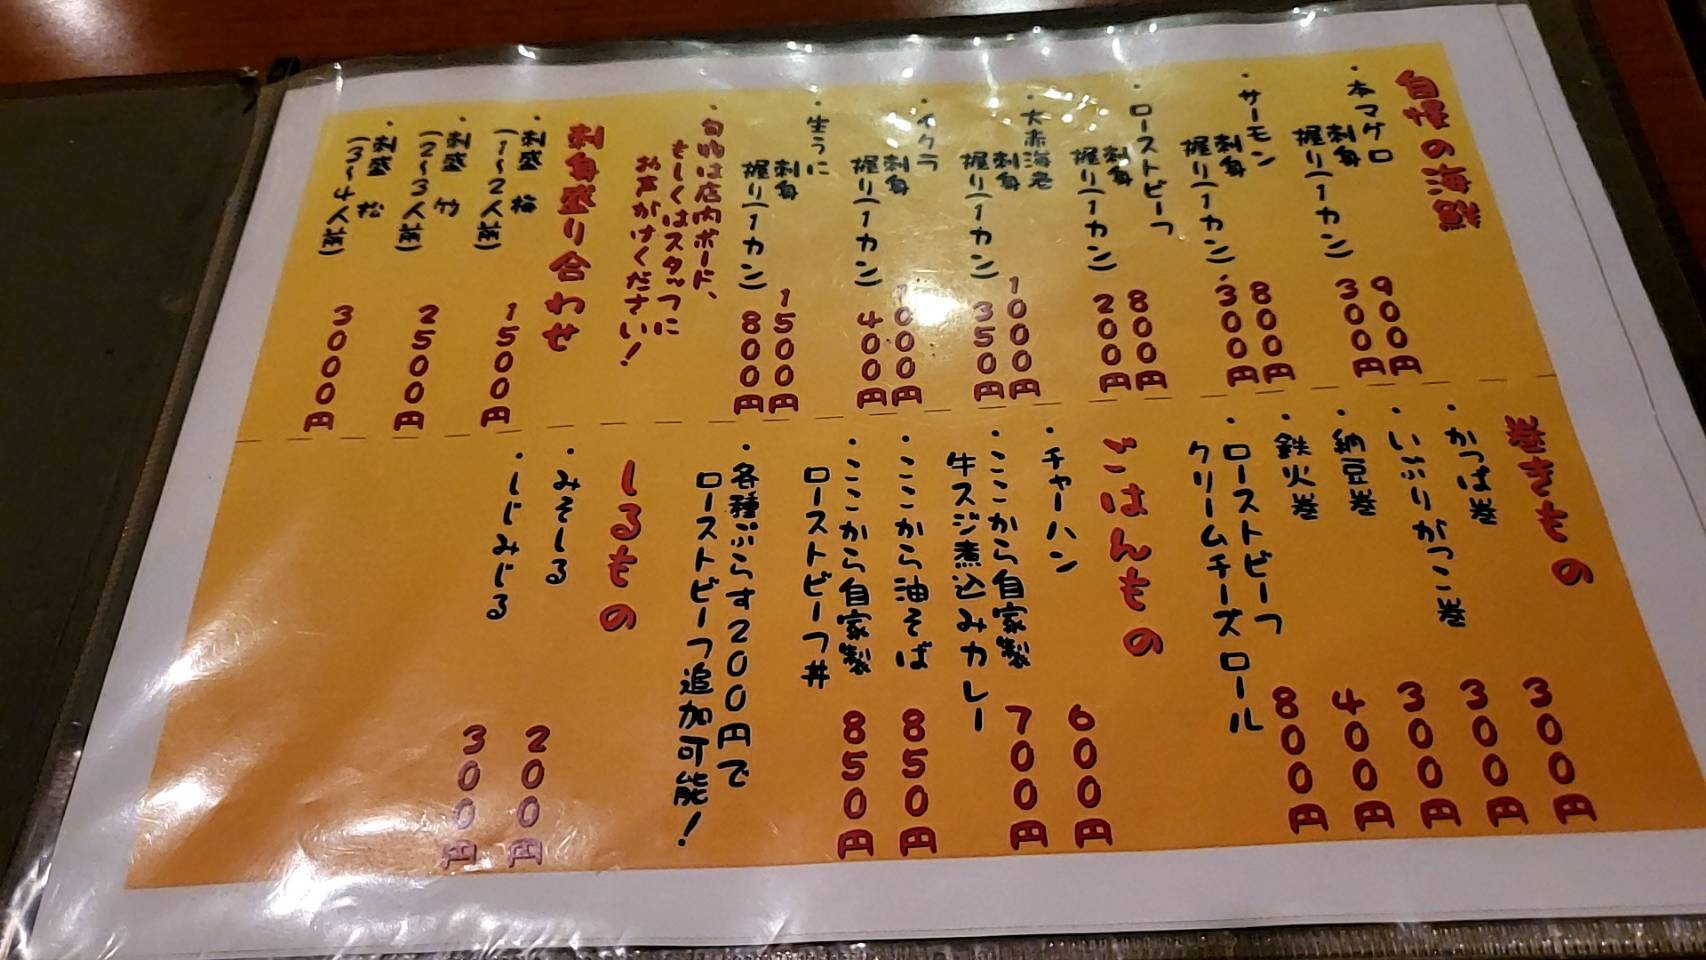 自慢の海鮮
・本マグロ
刺身 900円
握り(1カン) 300円
・サーモン
刺身 800円
握り(1カン) 300円
・ローストビーフ
刺身 800円
握り(1カン) 200円
・大赤海老
刺身 1000円
握り(1カン) 350円
・イクラ
刺身 1000円
握り(1カン) 400円
・生うに
刺身 1500円
握り(1カン) 800円
・旬物は店内ボード、
もしくはスタッフに
お声がけください!
刺身盛り合わせ
・刺盛 梅
(1〜2人前) 1500円
・刺盛 竹
(2〜3人前) 2500円
・刺盛 松
(3〜4人前) 3000円
巻きもの
・かっぱ巻 300円
・いぶりがっこ巻 300円
・納豆巻 300円
・鉄火巻 400円
・ローストビーフ
クリームチーズロール 800円
ごはんもの
・チャーハン 600円
・ここから自家製
牛スジ煮込みカレー 700円
・ここから油そば 850円
・ここから自家製
ローストビーフ丼 850円
・各種ぷらす200円で
ローストビーフ追加可能!
しるもの
・みそしる 200円
・しじみじる 300円